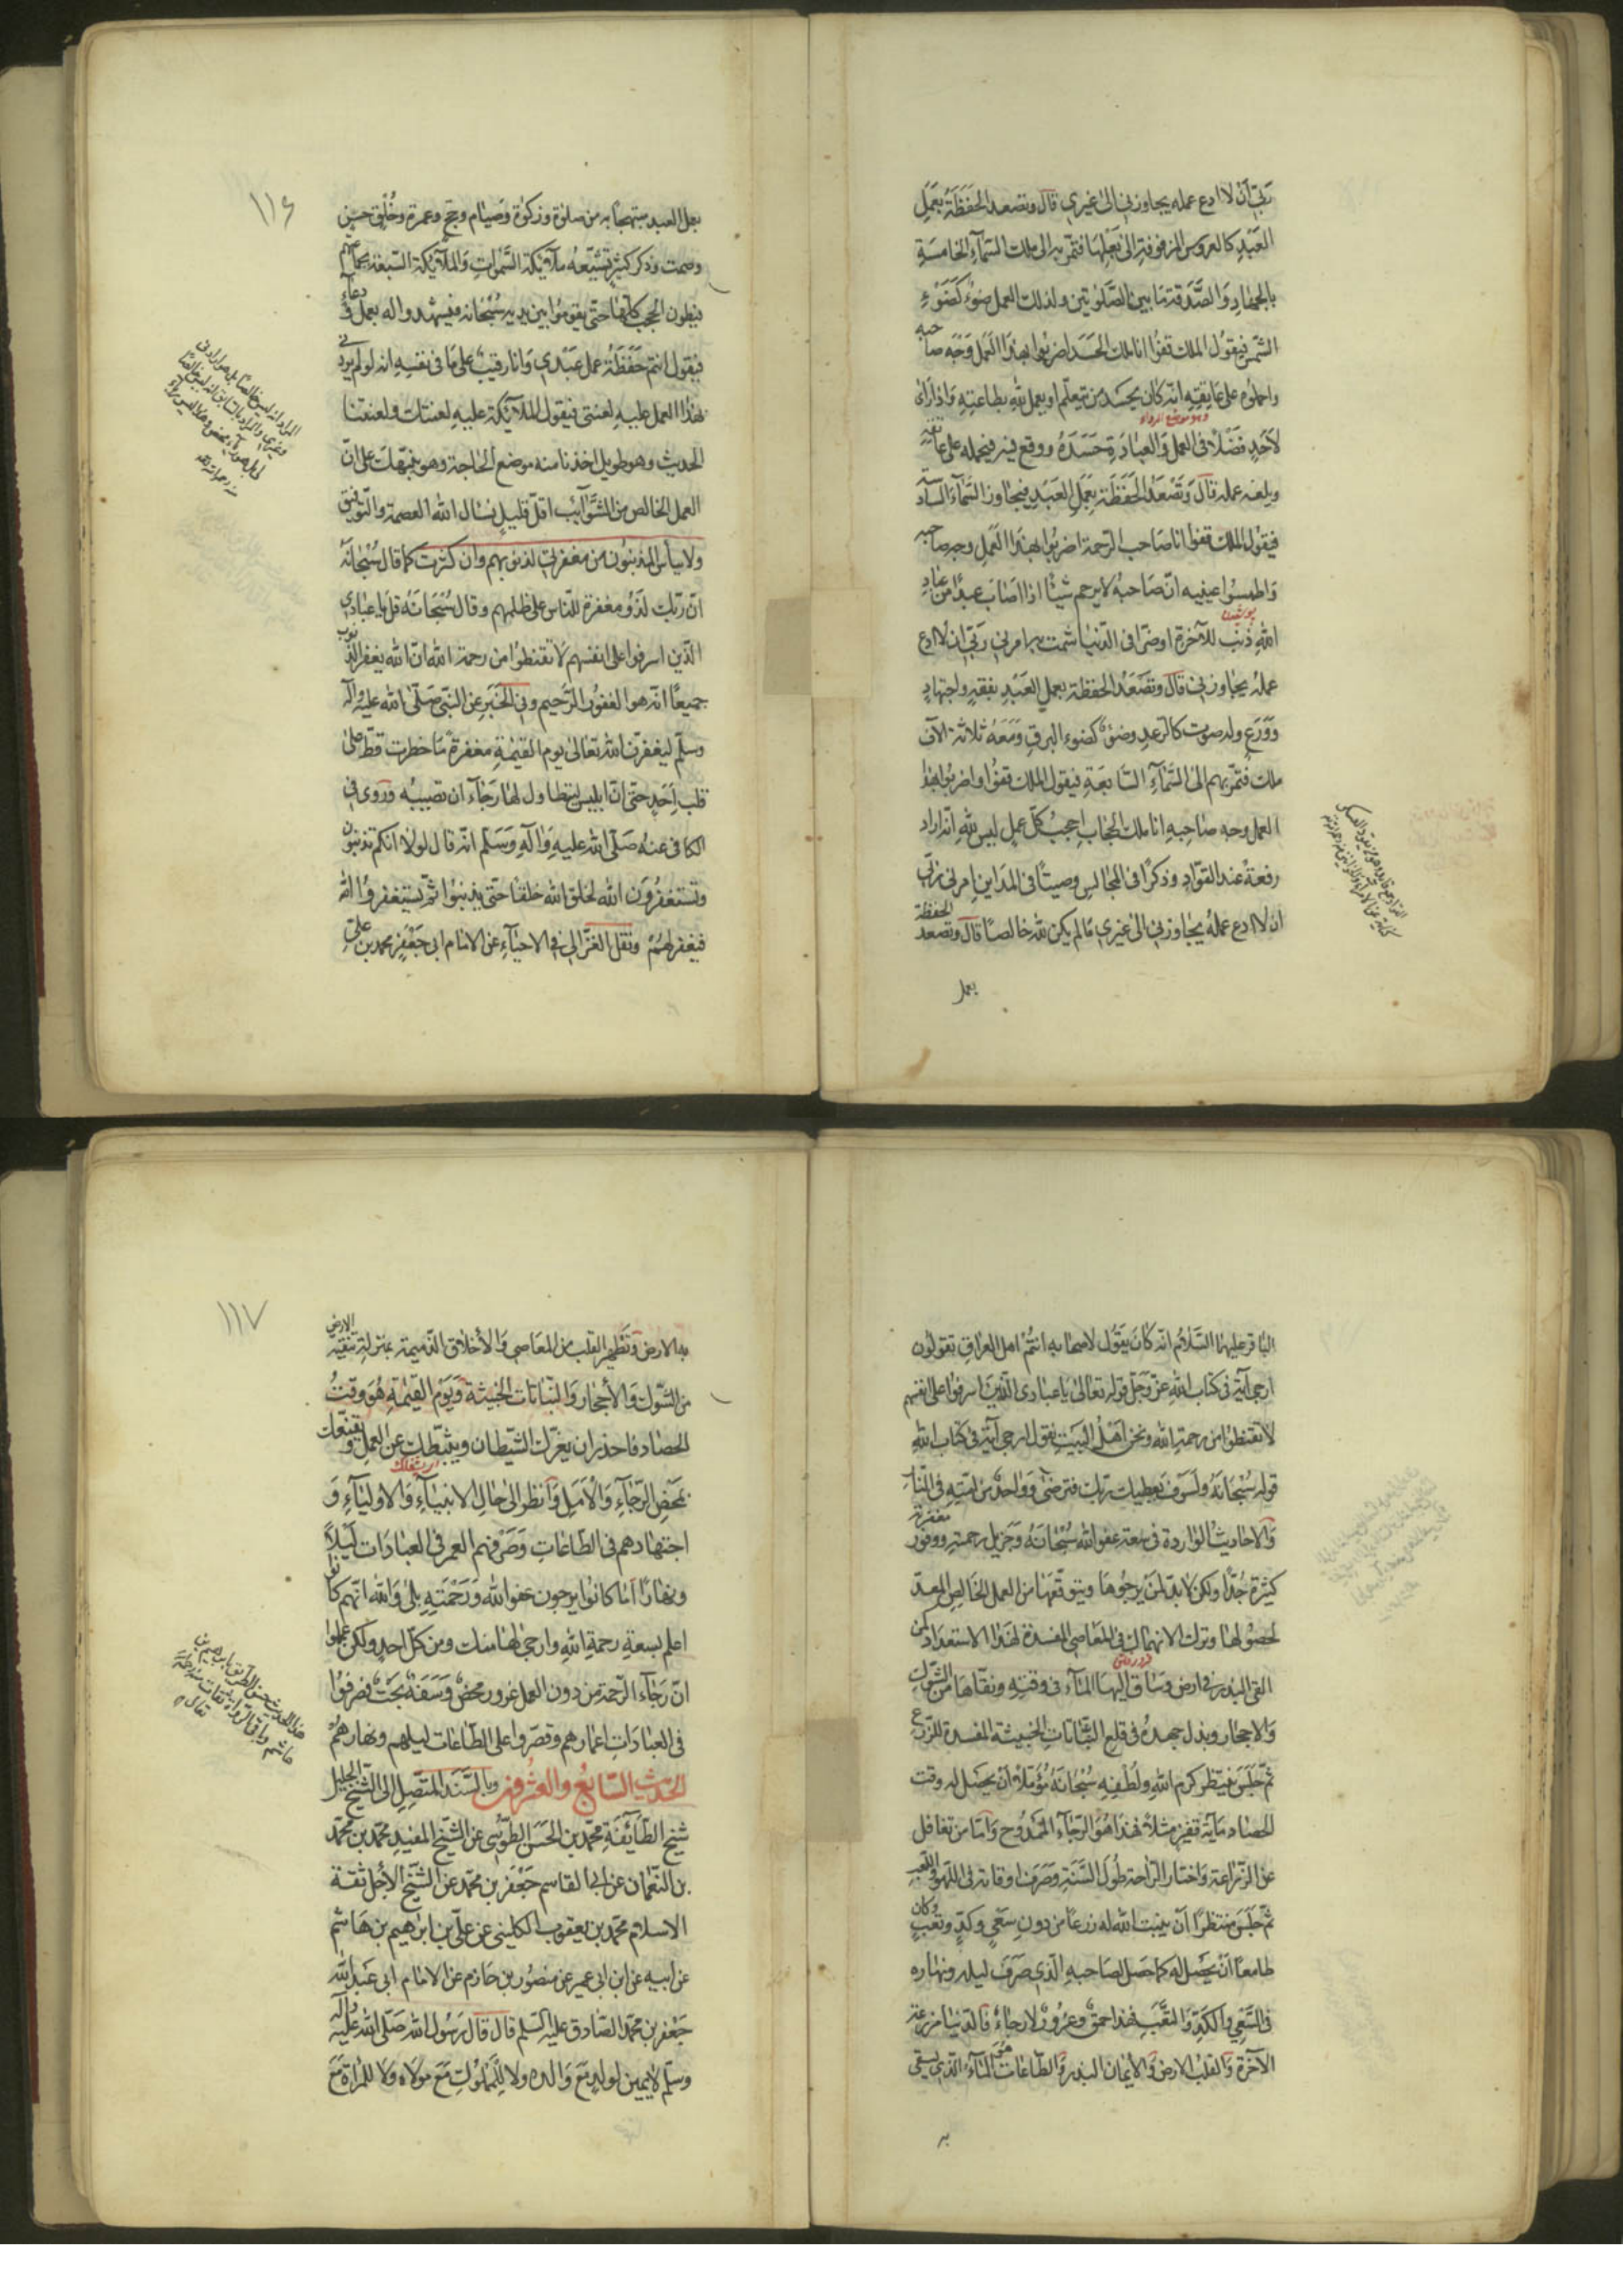 ربي أن لا ادع عمله يجاوزني الى غيري قال وتصعد الحفظة بعمل
العبد كالعروس المزفوفة الى بعلها فتمر به الى ملك السماء الخامسة
بالجهاد والصدقة ما بين الصلوتين ولذلك العمل ضوء كضوء
الشمس فيقول الملك قفوا انا ملك الحسد اضربوا بهذا العمل وجه صاحبه
واحملوه على عاتقه انه كان يحسد من يتعلم او يعمل لله بطاعته واذا رأى
وهو موضع الرداء
لأحد فضلا في العمل والعبادة حسده ووقع فيه فيحمله على عاتقه
ويلعنه عمله قال وتصعد الحفظة بعمل العبد فيجاوز السماء السادسة
فيقول الملك قفوا انا صاحب الرحمة اضربوا بهذا العمل وجه صاحبه
واطمسوا عينيه ان صاحبه لا يرحم شيئا اذا اصاب عبدا من عباد
الله ذنب للآخرة او ضرا في الدنيا شمت به امرني ربي ان لا ادع
عمله يجاوزني قال وتصعد الحفظة بعمل العبد بفقه واجتهاد
وورع وله صوت كالرعد وضوء كضوء البرق ومعه ثلاثة الاف
ملك فتمر بهم الى السماء السابعة فيقول الملك قفوا واضربوا بهذا
العمل وجه صاحبه انا ملك الحجاب احجب كل عمل ليس لله انه اراد
رفعة عند القواد وذكرا في المجالس وصيتا في المداين امرني ربي
ان لا ادع عمله يجاوزني الى غيري ما لم يكن لله خالصا قال وتصعد الحفظة
بعمل
١١٦
بعمل العبد مبتهجا به من صلوة وزكوة وصيام وحج وعمرة وخلق حسن
وصمت وذكر كثير تشيعه ملائكة السموات والملائكة السبعة بجماعتهم
فيطون الحجب كلها حتى يقوموا بين يديه سبحانه فيشهدوا له بعمل ودعاء
فيقول انتم حفظة عمل عبدي وانا رقيب على ما في نفسه انه لم يردني
بهذا العمل عليه لعنتي فيقول الملائكة عليه لعنتك ولعنتنا
الحديث وهو طويل اخذنا منه موضع الحاجة وهو ينبهك على ان
العمل الخالص من الشوائب اقل قليل نسال الله العصمة والتوفيق
ولا ييأس المذنبون من مغفرتي لذنوبهم وان كثرت كما قال سبحانه
ان ربك لذو مغفرة للناس على ظلمهم وقال سبحانه قل يا عبادي
الذين اسرفوا على انفسهم لا تقنطوا من رحمة الله ان الله يغفر الذنوب
جميعا انه هو الغفور الرحيم وفي الخبر عن النبي صلى الله عليه واله
وسلم ليغفرن الله تعالى يوم القيمة مغفرة ما خطرت قط على
قلب احد حتى ان ابليس ليتطاول لها رجاء ان تصيبه وروى في
الكافي عنه صلى الله عليه وآله وسلم انه قال لولا انكم تذنبون
وتستغفرون الله لخلق الله خلقا حتى يذنبوا ثم يستغفروا الله
فيغفر لهم ونقل الغزالي في الاحياء عن الامام ابي جعفر محمد بن علي
الباقر عليهما السلام انه كان يقول لاصحابه انتم اهل العراق تقولون
ارجى آية في كتاب الله عز وجل قوله تعالى يا عبادي الذين اسرفوا على انفسهم
لا تقنطوا من رحمة الله ونحن اهل البيت نقول ارجى آية في كتاب الله
قوله سبحانه ولسوف يعطيك ربك فترضى وواحد من امته في النار
والاحاديث الواردة في سعة عفو الله سبحانه وجزيل رحمته ووفور مغفرته
كثيرة جدا ولكن لا بد لمن يرجوها ويتوقعها من العمل الخالص المعد
لحصولها وترك الانهماك في المعاصي المفسدة لهذا الاستعداد كمن
القى البذر في ارض وساق اليها الماء في وقته ونقاها من الشوك
والاحجار وبذل جهده في قلع النباتات الخبيثة المفسدة للزرع
ثم جلس ينتظر كرم الله ولطفه سبحانه مؤملا ان يحصل له وقت
الحصاد مائة قفيز مثلا فهذا هو الرجاء الممدوح واما من تغافل
عن الزراعة واختار الراحة طول السنة وصرف اوقاته في اللهو واللعب
ثم جلس منتظرا ان ينبت الله له زرعا من دون سعي وكد وتعب وكان
طامعا ان يحصل له كما حصل لصاحبه الذي صرف ليله ونهاره
في السعي والكد والتعب فهذا حمق وغرور لا رجاء فالدنيا مزرعة
الآخرة والقلب الارض والايمان البذر والطاعات هي الماء الذي يسقى
به
١١٧
به الارض وتطهير القلب من المعاصي والأخلاق الذميمة بمنزلة تنقية الارض
من الشوك والأحجار والنباتات الخبيثة ويوم القيمة هو وقت
الحصاد فاحذر ان يغرك الشيطان ويثبطك عن العمل ويقنعك
بمحض الرجاء والأمل وانظر الى حال الانبياء والاولياء و
اجتهادهم في الطاعات وصرفهم العمر في العبادات ليلا
ونهارا اما كانوا يرجون عفو الله ورحمته بلى والله انهم كانوا
اعلم بسعة رحمة الله وارجى لها منك ومن كل احد ولكن علموا
ان رجاء الرحمة من دون العمل غرور محض وسفه بحت فصرفوا
في العبادات اعمارهم وقصروا على الطاعات ليلهم ونهارهم
الحديث السابع والعشرون وبالسند المتصل الى الشيخ الجليل
شيخ الطائفة محمد بن الحسن الطوسي عن الشيخ المفيد محمد بن محمد
بن النعمان عن ابي القاسم جعفر بن محمد عن الشيخ الأجل ثقة
الاسلام محمد بن يعقوب الكليني عن علي بن ابراهيم بن هاشم
عن ابيه عن ابن ابي عمير عن منصور بن حازم عن الامام ابي عبد الله
جعفر بن محمد الصادق عليه السلم قال قال رسول الله صلى الله عليه وآله
وسلم لا يمين لولد مع والده ولا للمملوك مع مولاه ولا للمراة مع